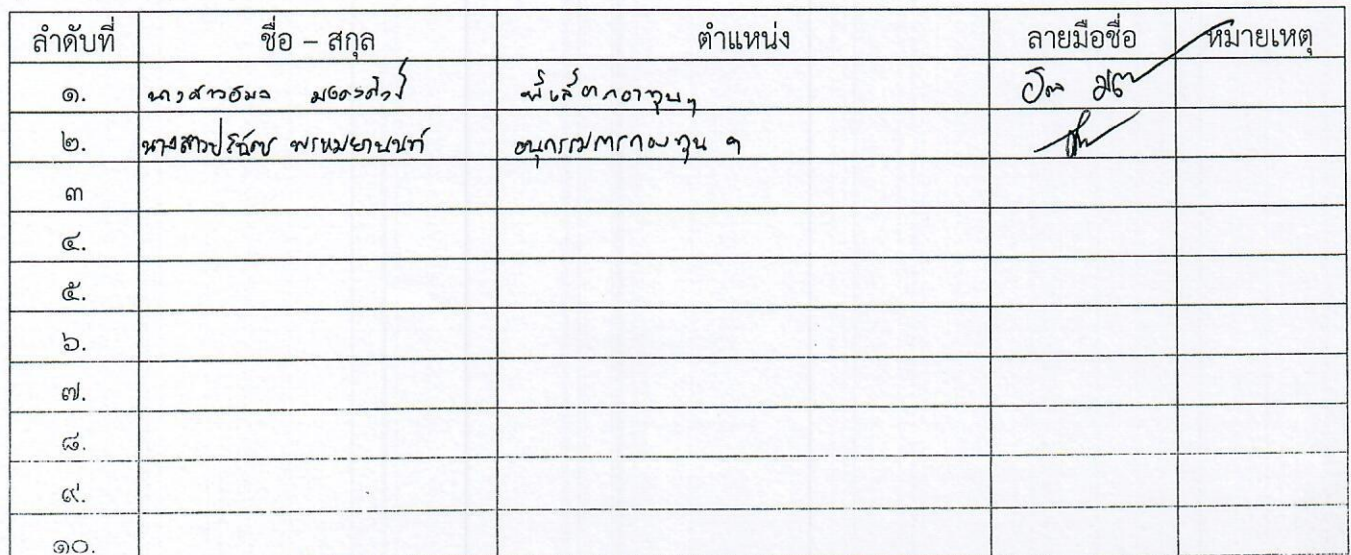 ลำดับที่ ชื่อ – สกุล ตำแหน่ง ลายมือชื่อ หมายเหตุ
๑. นางสาว พี่เลี้ยงกองทุนฯ
๒. นางสาว พรหมยานนท์ อนุกรรมการกองทุน ฯ
๓
๔.
๕.
๖.
๗.
๘.
๙.
๑๐.